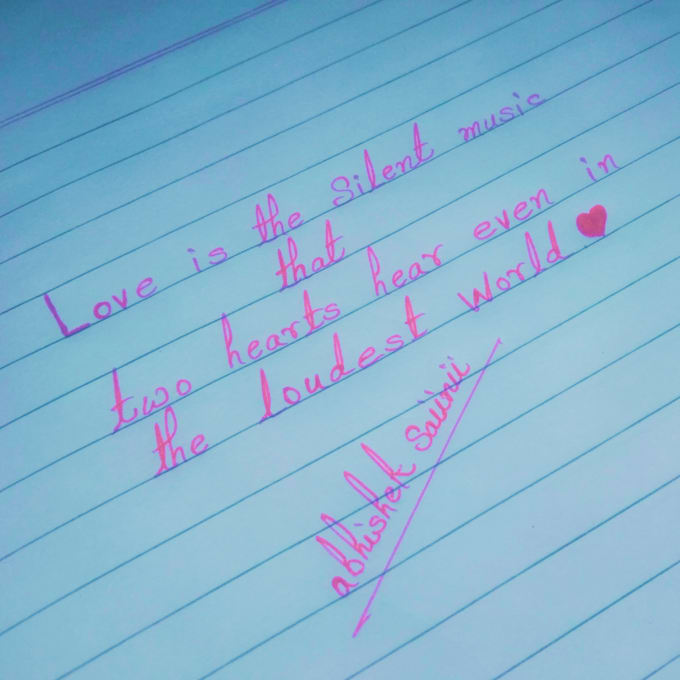 Love is the Silent music
that
two hearts hear even in
the loudest World ♥
abhishek Saiinii